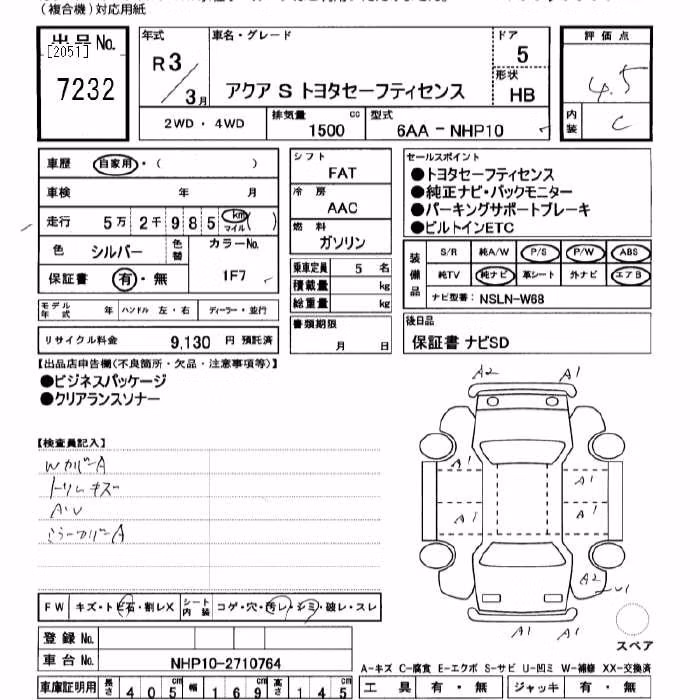 (複合機)対応用紙
出品No.
[2051]
7232
年式
R3/3月
車名・グレード
アクア S トヨタセーフティセンス
ドア
5
形状
HB
評価点
4.5
内装
C
2WD ・ 4WD
排気量
1500 cc
型式
6AA - NHP10
車歴 自家用・( )
車検 年 月
走行 5万 2千 9 8 5 km マイル ( )
色 シルバー
色替
カラーNo.
1F7
保証書 有・無
モデル年式 年
ハンドル 左・右
ディーラー・並行
リサイクル料金 9,130 円 預託済
シフト
FAT
冷房
AAC
燃料
ガソリン
乗車定員 5 名
積載量 kg
総重量 kg
書類期限
月 日
セールスポイント
●トヨタセーフティセンス
●純正ナビ・バックモニター
●パーキングサポートブレーキ
●ビルトインETC
装備品
S/R 純A/W P/S P/W ABS
純TV 純ナビ 革シート 外ナビ エアB
ナビ型番: NSLN-W68
後日品
保証書 ナビSD
【出品店申告欄(不良箇所・欠品・注意事項等)】
●ビジネスパッケージ
●クリアランスソナー
【検査員記入】
WカバーA
トリムキズ
A・U
ミラーカバーA
A2 A1
A1 A1
A1 A1
A2
A1 A1
スペア
FW キズ・トビ石・割レX
シート内装 コゲ・穴・汚レ・シミ・破レ・スレ
登録No.
車台No. NHP10-2710764
車庫証明用 長さ 405cm 幅 169cm 高さ 145cm
A-キズ C-腐食 E-エクボ S-サビ U-凹ミ W-補修 XX-交換済
工具 有・無 ジャッキ 有・無